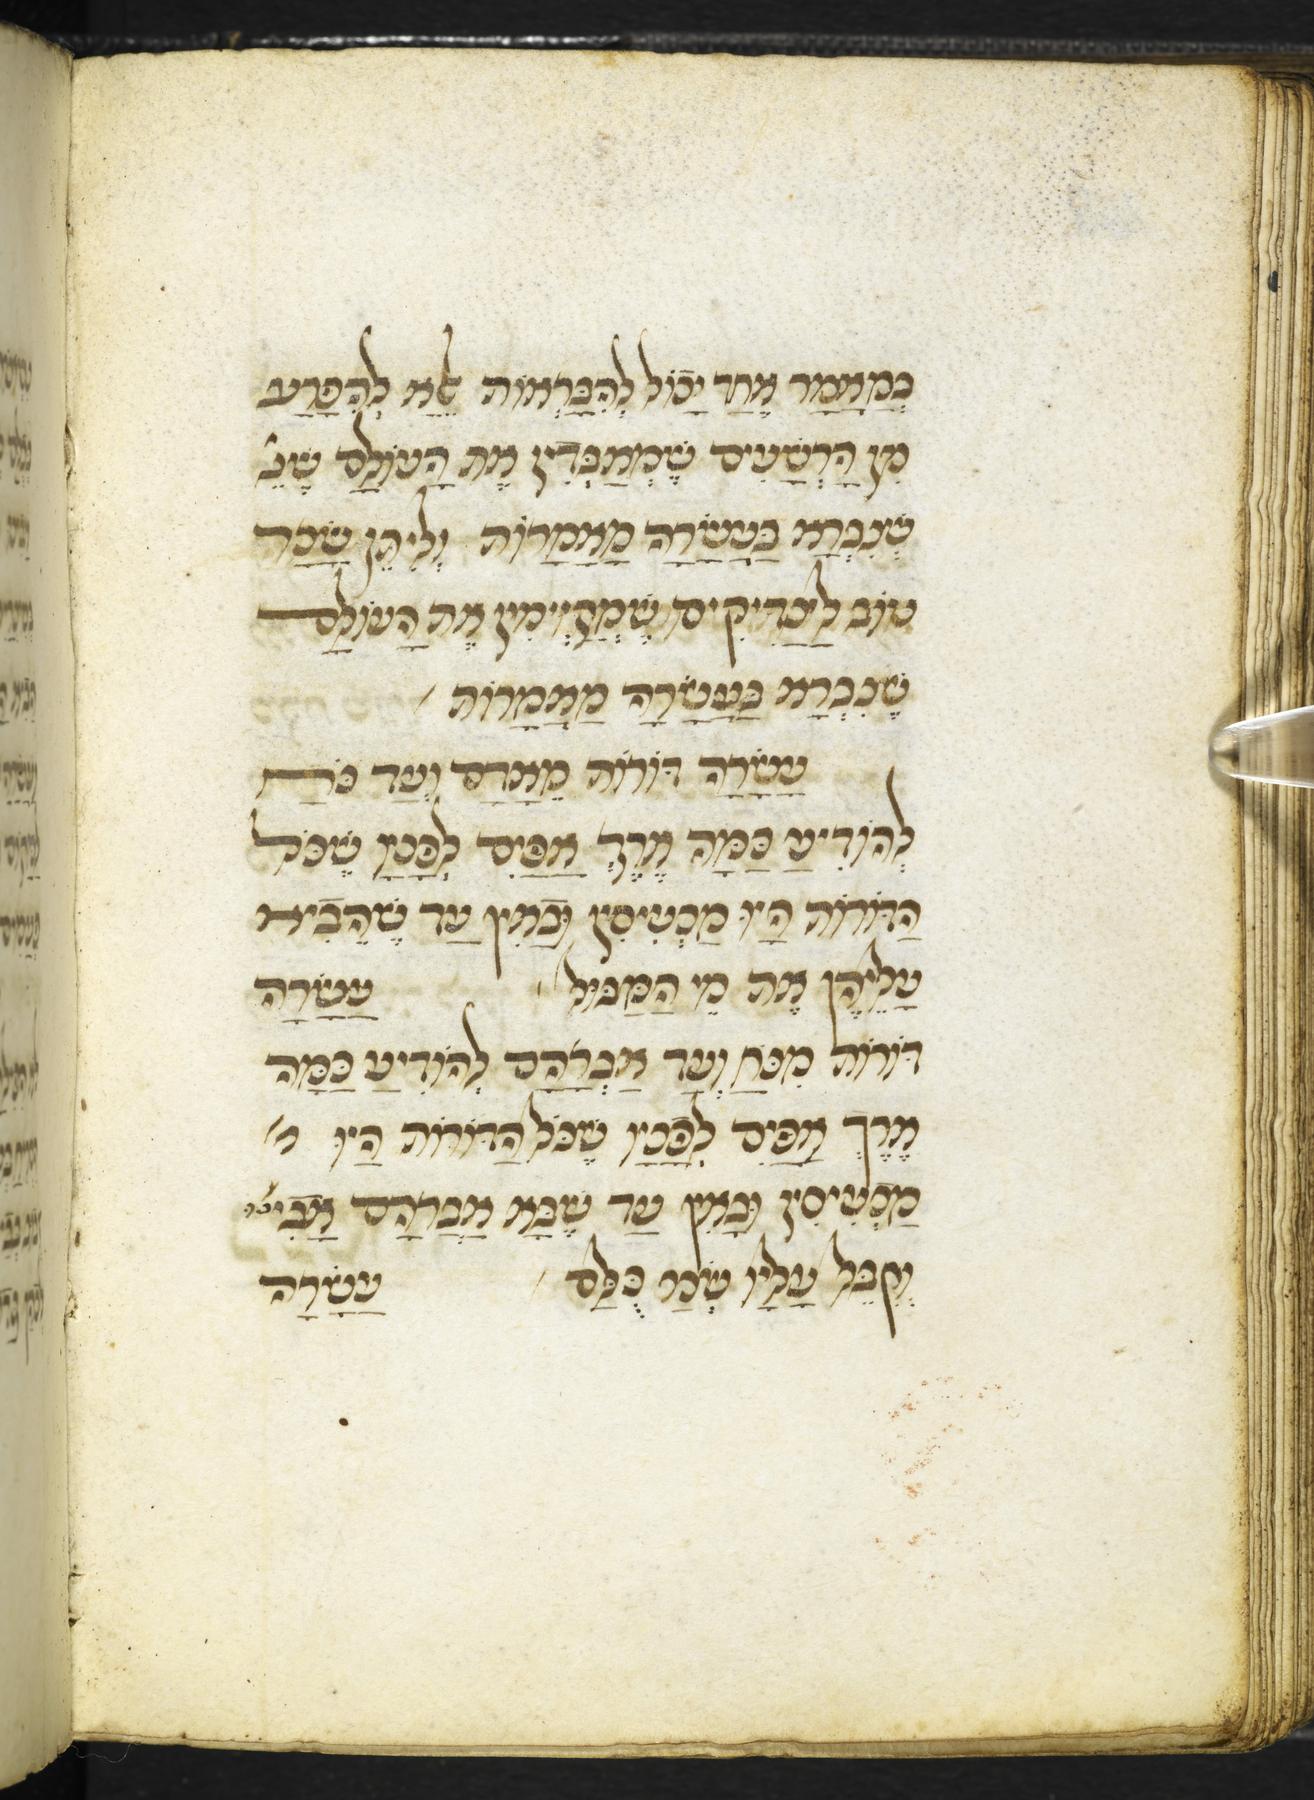 בְּמַאֲמָר אֶחָד יָכוֹל לְהִבָּרְאוֹת אֶלָּא לְהִפָּרַע
מִן הָרְשָׁעִים שֶׁמְאַבְּדִין אֶת הָעוֹלָם שֶׁנִ׳
שֶׁנִבְרָא בַּעֲשָׂרָה מַאֲמָרוֹת וְלִיתֵּן שָׂכָר
טוֹב לַצַדִיקִים שֶׁמְקַיְימִין אֶת הָעוֹלָם
שֶׁנִבְרָא בַּעֲשָׂרָה מַאֲמָרוֹת ׳
עֲשָׂרָה דוֹרוֹת מֵאָדָם וְעַד נֹחַ
לְהוֹדִיעַ כַּמָּה אֶרֶךְ אַפַּיִם לְפָנָיו שֶׁכֹּל
הַדּוֹרוֹת הָיוּ מַכְעִיסִין וּבָאִין עַד שֶׁהֵבִיא
עֲלֵיהֶן אֶת מֵי הַמַּבּוּל ׳ עֲשָׂרָה
דוֹרוֹת מִנֹּחַ וְעַד אַבְרָהָם לְהוֹדִיעַ כַּמָּה
אֶרֶךְ אַפַּיִם לְפָנָיו שֶׁכֹּל הַדּוֹרוֹת הָיוּ מ׳
מַכְעִיסִין וּבָאִין עַד שֶׁבָּא אַבְרָהָם אָבִינוּ
וְקִבֵּל עָלָיו שְׂכַר כֻּלָּם ׳ עֲשָׂרָה